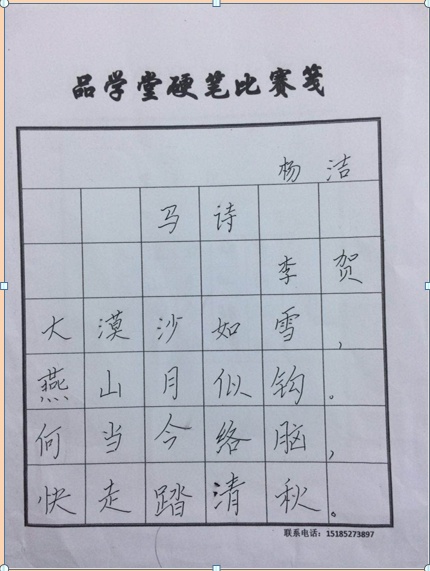 品学堂硬笔比赛笺
杨洁
马诗
李贺
大漠沙如雪，
燕山月似钩。
何当今络脑，
快走踏清秋。
联系电话：15185273897